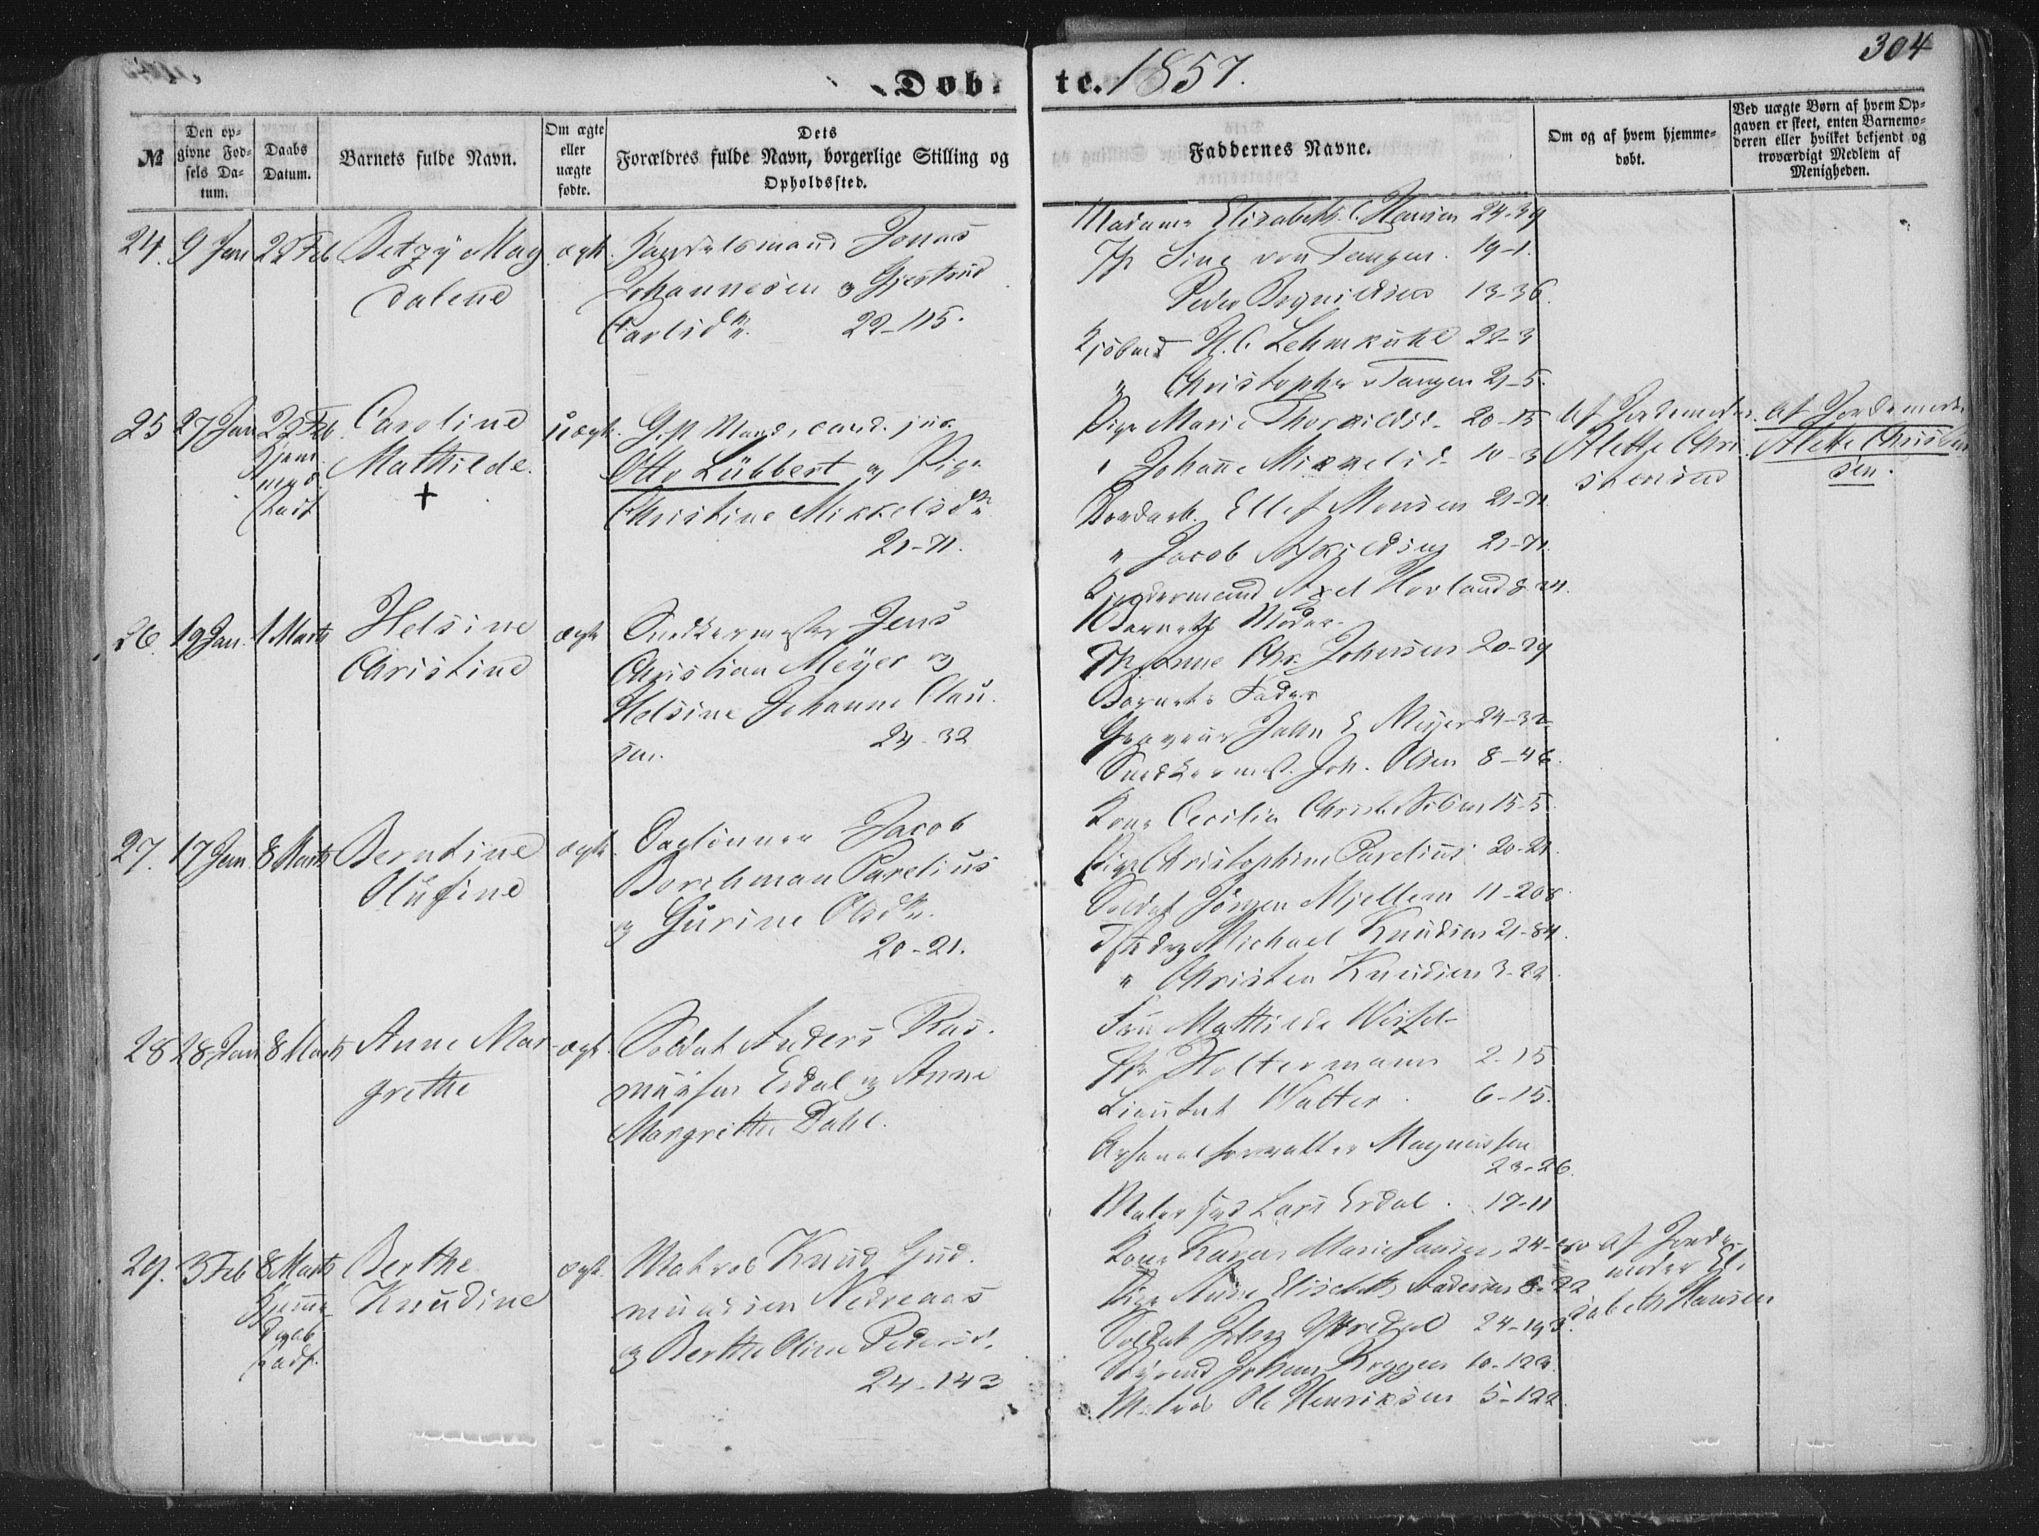 304
Døb- te. 1857.
№
Den opgivne Fødsels Datum.
Daabs Datum.
Barnets fulde Navn.
Om ægte eller uægte fødte.
Dets Forældres fulde Navn, borgerlige Stilling og Opholdssted.
Faddernes Navne.
Om og af hvem hjemmedøbt.
Ved uægte Børn af hvem Opgaven er skeet, enten Barnemoderen eller hvilket bekjendt og troværdigt Medlem af Menigheden.
24. 9 Jan 22 Feb Betzy Mag
dalene
ægte
Handelsmand Jonas
Johannesen og Gjertrud
Carlsdtr. 22-115.
Madame Elisabeth C. Hansen 24-39
Jfr Sine von Tangen. 19-1.
Peder Bognildsen 13-36.
Kjøbmd H. C. Lehmkuhl 22-3
" Christopher v Tangen 21-5.
25 27 Jan 22 Feb
Hjem
Caroline
Mathilde.
+
uægte.
Gift Mand, cand. jur.
Otto Lübbert og Pige
Christine Mikkelsdtr
21-71.
Pige Marie Thorkildsd. 20-15
" Johanne Mikkelsd. 10-3
Ellef Monsen 21-71
" Jacob Askildsen 21-71.
Axel Hovland
Af Jordemoder
Alette Chri
stensen
Af Jordemoder
Alette Christen
sen.
26. 19 Jan. 1 Marts
Helsine
Christine
ægte
Snedkermester Jens
Christian Meyer og
Helsine Johanne Clau
sen. 24-32
Barnets Moder.
Jfr Anne Chr. Johnsen 20-29
Barnets Fader
Graveur John E Meyer 24-32
Snedkermest. Joh. Olsen 8-46.
27. 17 Jan 8 Marts
Berntine
Olufine
ægte.
Daglønner Jacob
Borchman Parelius
og Gurine Olsdtr.
20-21.
Kone Cecilia 15-5.
Pige Christophine Parelius 20-21.
Soldat Jørgen Mjellem 11-208.
Michael Knudsen 21-84.
" Christen Knudsen 3-22.
28 28 Jan 8 Marts
Anne Mar
grethe
ægte.
Soldat Anders Ras.
mussen Erdal og Anne
Margrethe Dahl.
Fru Mathilde
Jfr Holtermann 2-15
Lieutnt Walter. 6-15.
Arsenalforvalter Magnussen
23-26.
Maler Lars Erdal. 17-11
29. 3 Feb 8 Marts
Hjemme
Daab
Berthe
Knudine
ægte.
Matros Knud Gud.
mundsen Nedreaas
og Berthe Oline Pedersd.
24-143
Kone Karen Marie Hansen,
Pige Anne Elisabeth Andersen 8-22
Soldat
Johan Bryggen 10-122.
Matros Ole Henriksen 5-122.
Af Jorde-
moder El.
isabeth Hansen